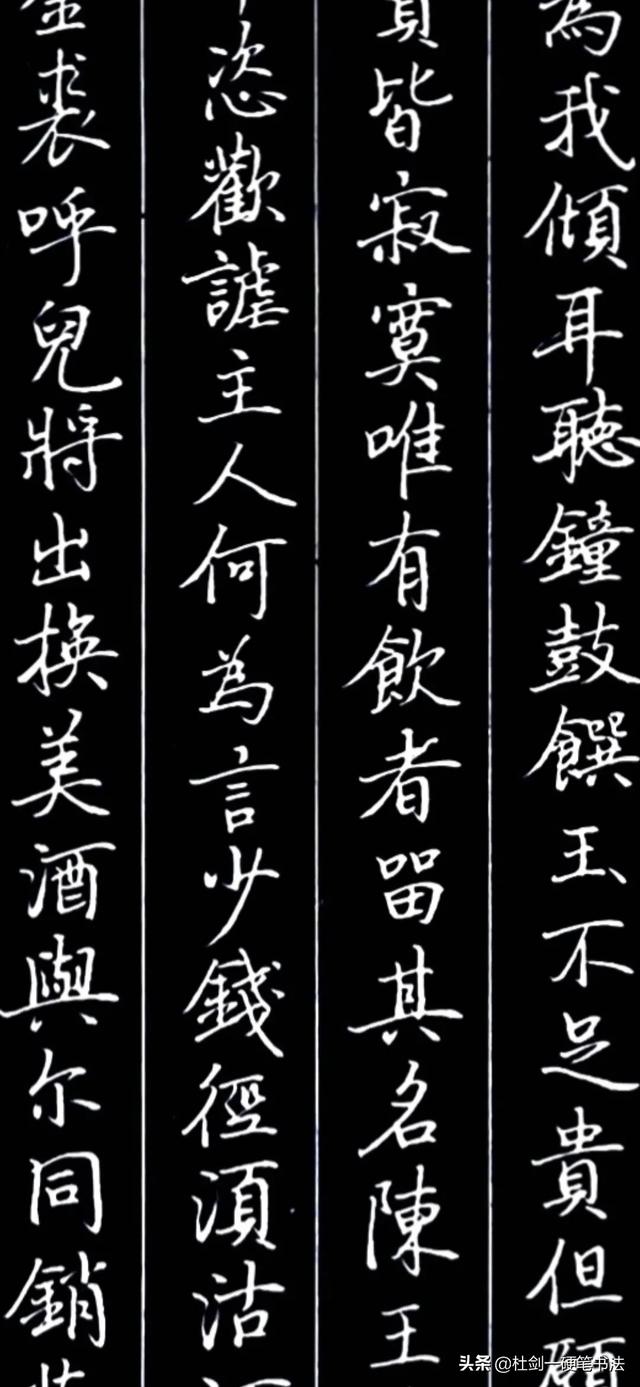 為我傾耳聽鐘鼓饌玉不足貴但願
皆寂寞唯有飲者留其名陳王
恣歡謔主人何為言少錢徑須沽
裘呼兒將出換美酒與尔同銷
头条 @杜剑一硬笔书法